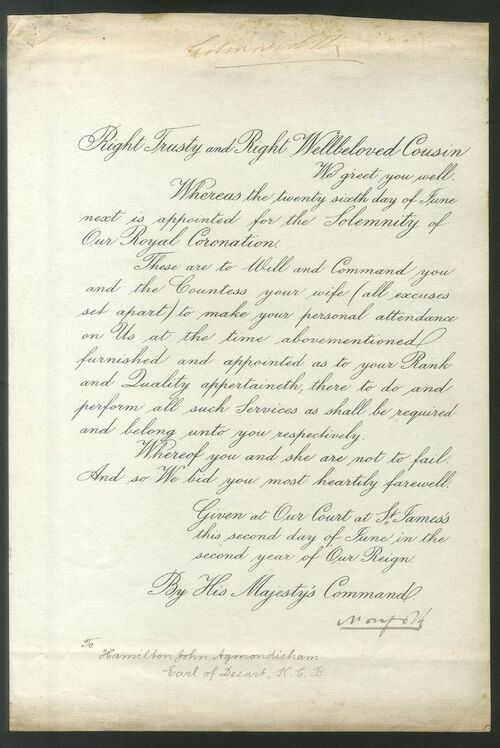 Right Trusty and Right Wellbeloved Cousin
We greet you well.
Whereas the twenty sixth day of June
next is appointed for the Solemnity of
Our Royal Coronation.
These are to Will and Command you
and the Countess your wife (all excuses
set apart) to make your personal attendance
on Us at the time abovementioned
furnished and appointed as to your Rank
and Quality appertaineth, there to do and
perform all such Services as shall be required
and belong unto you respectively.
Whereof you and she are not to fail.
And so We bid you most heartily farewell.
Given at Our Court at St. James's
this second day of June in the
second year of Our Reign.
By His Majesty's Command
Norfolk
To
Hamilton John Agmondisham
Earl of Desart, K.C.B.